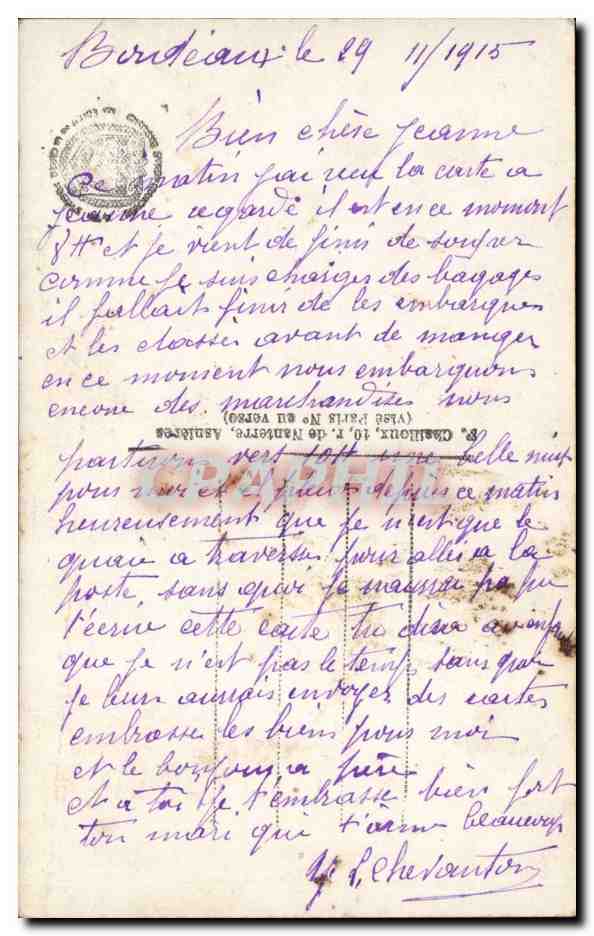 Bordeaux le 29 11/1915
Bien chère Jeanne
Ce matin j'ai reçu la carte a
Jeanne regarde il est en ce moment
8H et je vient de finir de souper
comme je suis charger des bagages
il fallait finir de les embarques
et les classer avant de manger
en ce moment nous embarquons
encore des marchandises nous
E. Cheilloux, 10, r. de Nanterre, Asnières
(Visé Paris N° au verso)
partiron vers une belle nuit
pour moi et il pleut depuis ce matin
heureusement que je n'est que le
quai a traverser pour aller a la
poste, sans quoi je n'aussai pas pu
t'ecrire cette carte tu dira a
que je n'est pas le temps sans quoi
je leur aurais envoyer des cartes
embrasse les bien pour moi
et le bonjour a père
et a toi je t'embrasse bien fort
ton mari qui t'aime beaucoup
L. Chevanton
CPAPHIL